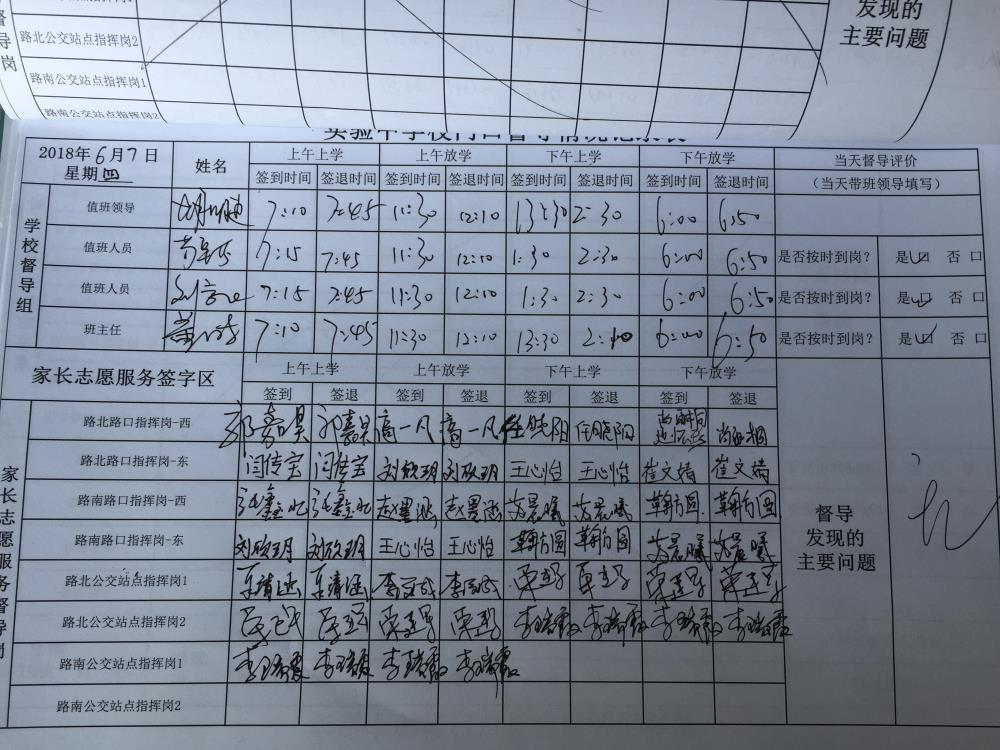 发现的
主要问题
路北公交站点指挥岗2
路南公交站点指挥岗1
路南公交站点指挥岗2
督导岗
实验中学校门口督导情况记录表
2018年6月7日
星期四
姓名
上午上学 上午放学 下午上学 下午放学 当天督导评价
签到时间 签退时间 签到时间 签退时间 签到时间 签退时间 签到时间 签退时间 (当天带班领导填写)
学校督导组
值班领导 7:10 7:45 11:30 12:10 13:30 2:30 6:00 6:50
值班人员 7:15 7:45 11:30 12:10 1:30 2:30 6:00 6:50 是否按时到岗? 是口 否口
值班人员 7:15 7:45 11:30 12:10 1:30 2:30 6:00 6:50 是否按时到岗? 是口 否口
班主任 7:10 7:45 11:30 12:10 13:30 6:00 6:50 是否按时到岗? 是口 否口
家长志愿服务签字区
上午上学 上午放学 下午上学 下午放学
签到 签退 签到 签退 签到 签退 签到 签退
家长志愿服务督导岗
路北路口指挥岗-西 郭嘉昊 郭嘉昊 高一凡 高一凡 任晓阳 任晓阳
路北路口指挥岗-东 闫佳宝 闫佳宝 刘欣玥 刘欣玥 王心怡 王心怡 崔文婧 崔文婧
路南路口指挥岗-西 赵墨涵 赵墨涵 艾晨曦 艾晨曦 韩方圆 韩方圆
路南路口指挥岗-东 刘欣玥 刘欣玥 王心怡 王心怡 韩方圆 韩方圆 艾晨曦 艾晨曦
路北公交站点指挥岗1
路北公交站点指挥岗2 李瑞霞 李瑞霞 李瑞霞 李瑞霞
路南公交站点指挥岗1 李瑞霞 李瑞霞 李瑞霞 李瑞霞
路南公交站点指挥岗2
督导
发现的
主要问题